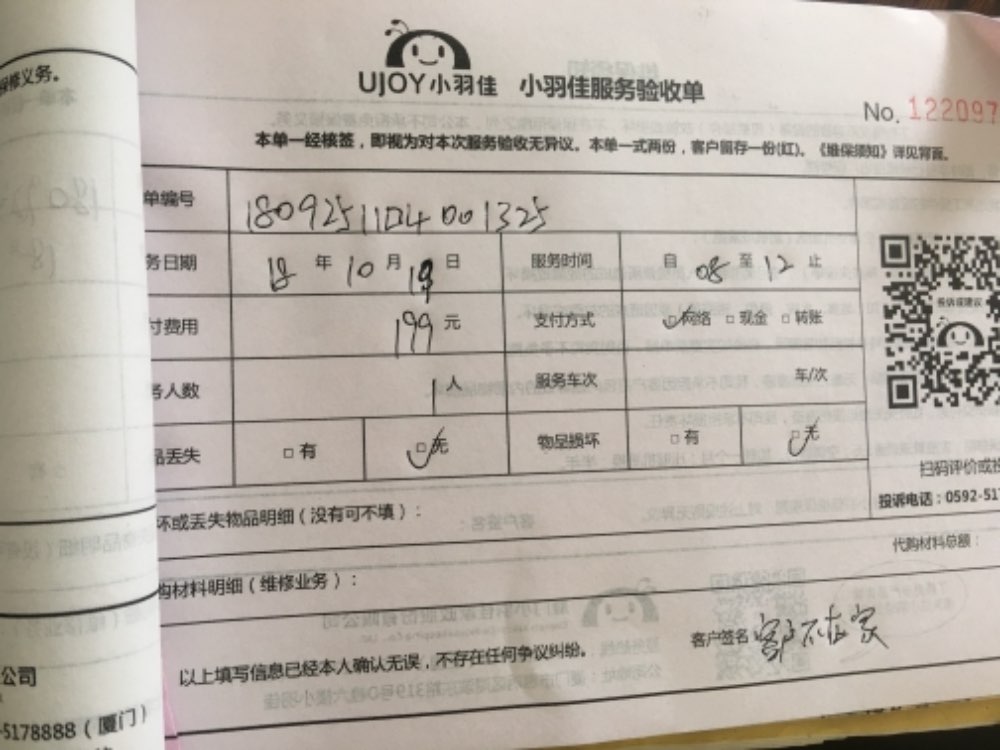 保修义务。
UJOY小羽佳 小羽佳服务验收单
No. 122097
本单一经核签，即视为对本次服务验收无异议。本单一式两份，客户留存一份(红)。《维保须知》详见背面。
单编号 1809251104001325
务日期 18 年 10 月 19 日 服务时间 自 08 至 12 止
付费用 199 元 支付方式 □网络 □现金 □转账
务人数 1 人 服务车次 车/次
品丢失 □有 □无 物品损坏 □有 □无
投诉或建议
扫码评价或投
投诉电话：0592-517
坏或丢失物品明细（没有可不填）：
代购材料总额：
购材料明细（维修业务）：
客户签名 客户不在家
以上填写信息已经本人确认无误，不存在任何争议纠纷。
公司
-5178888（厦门）